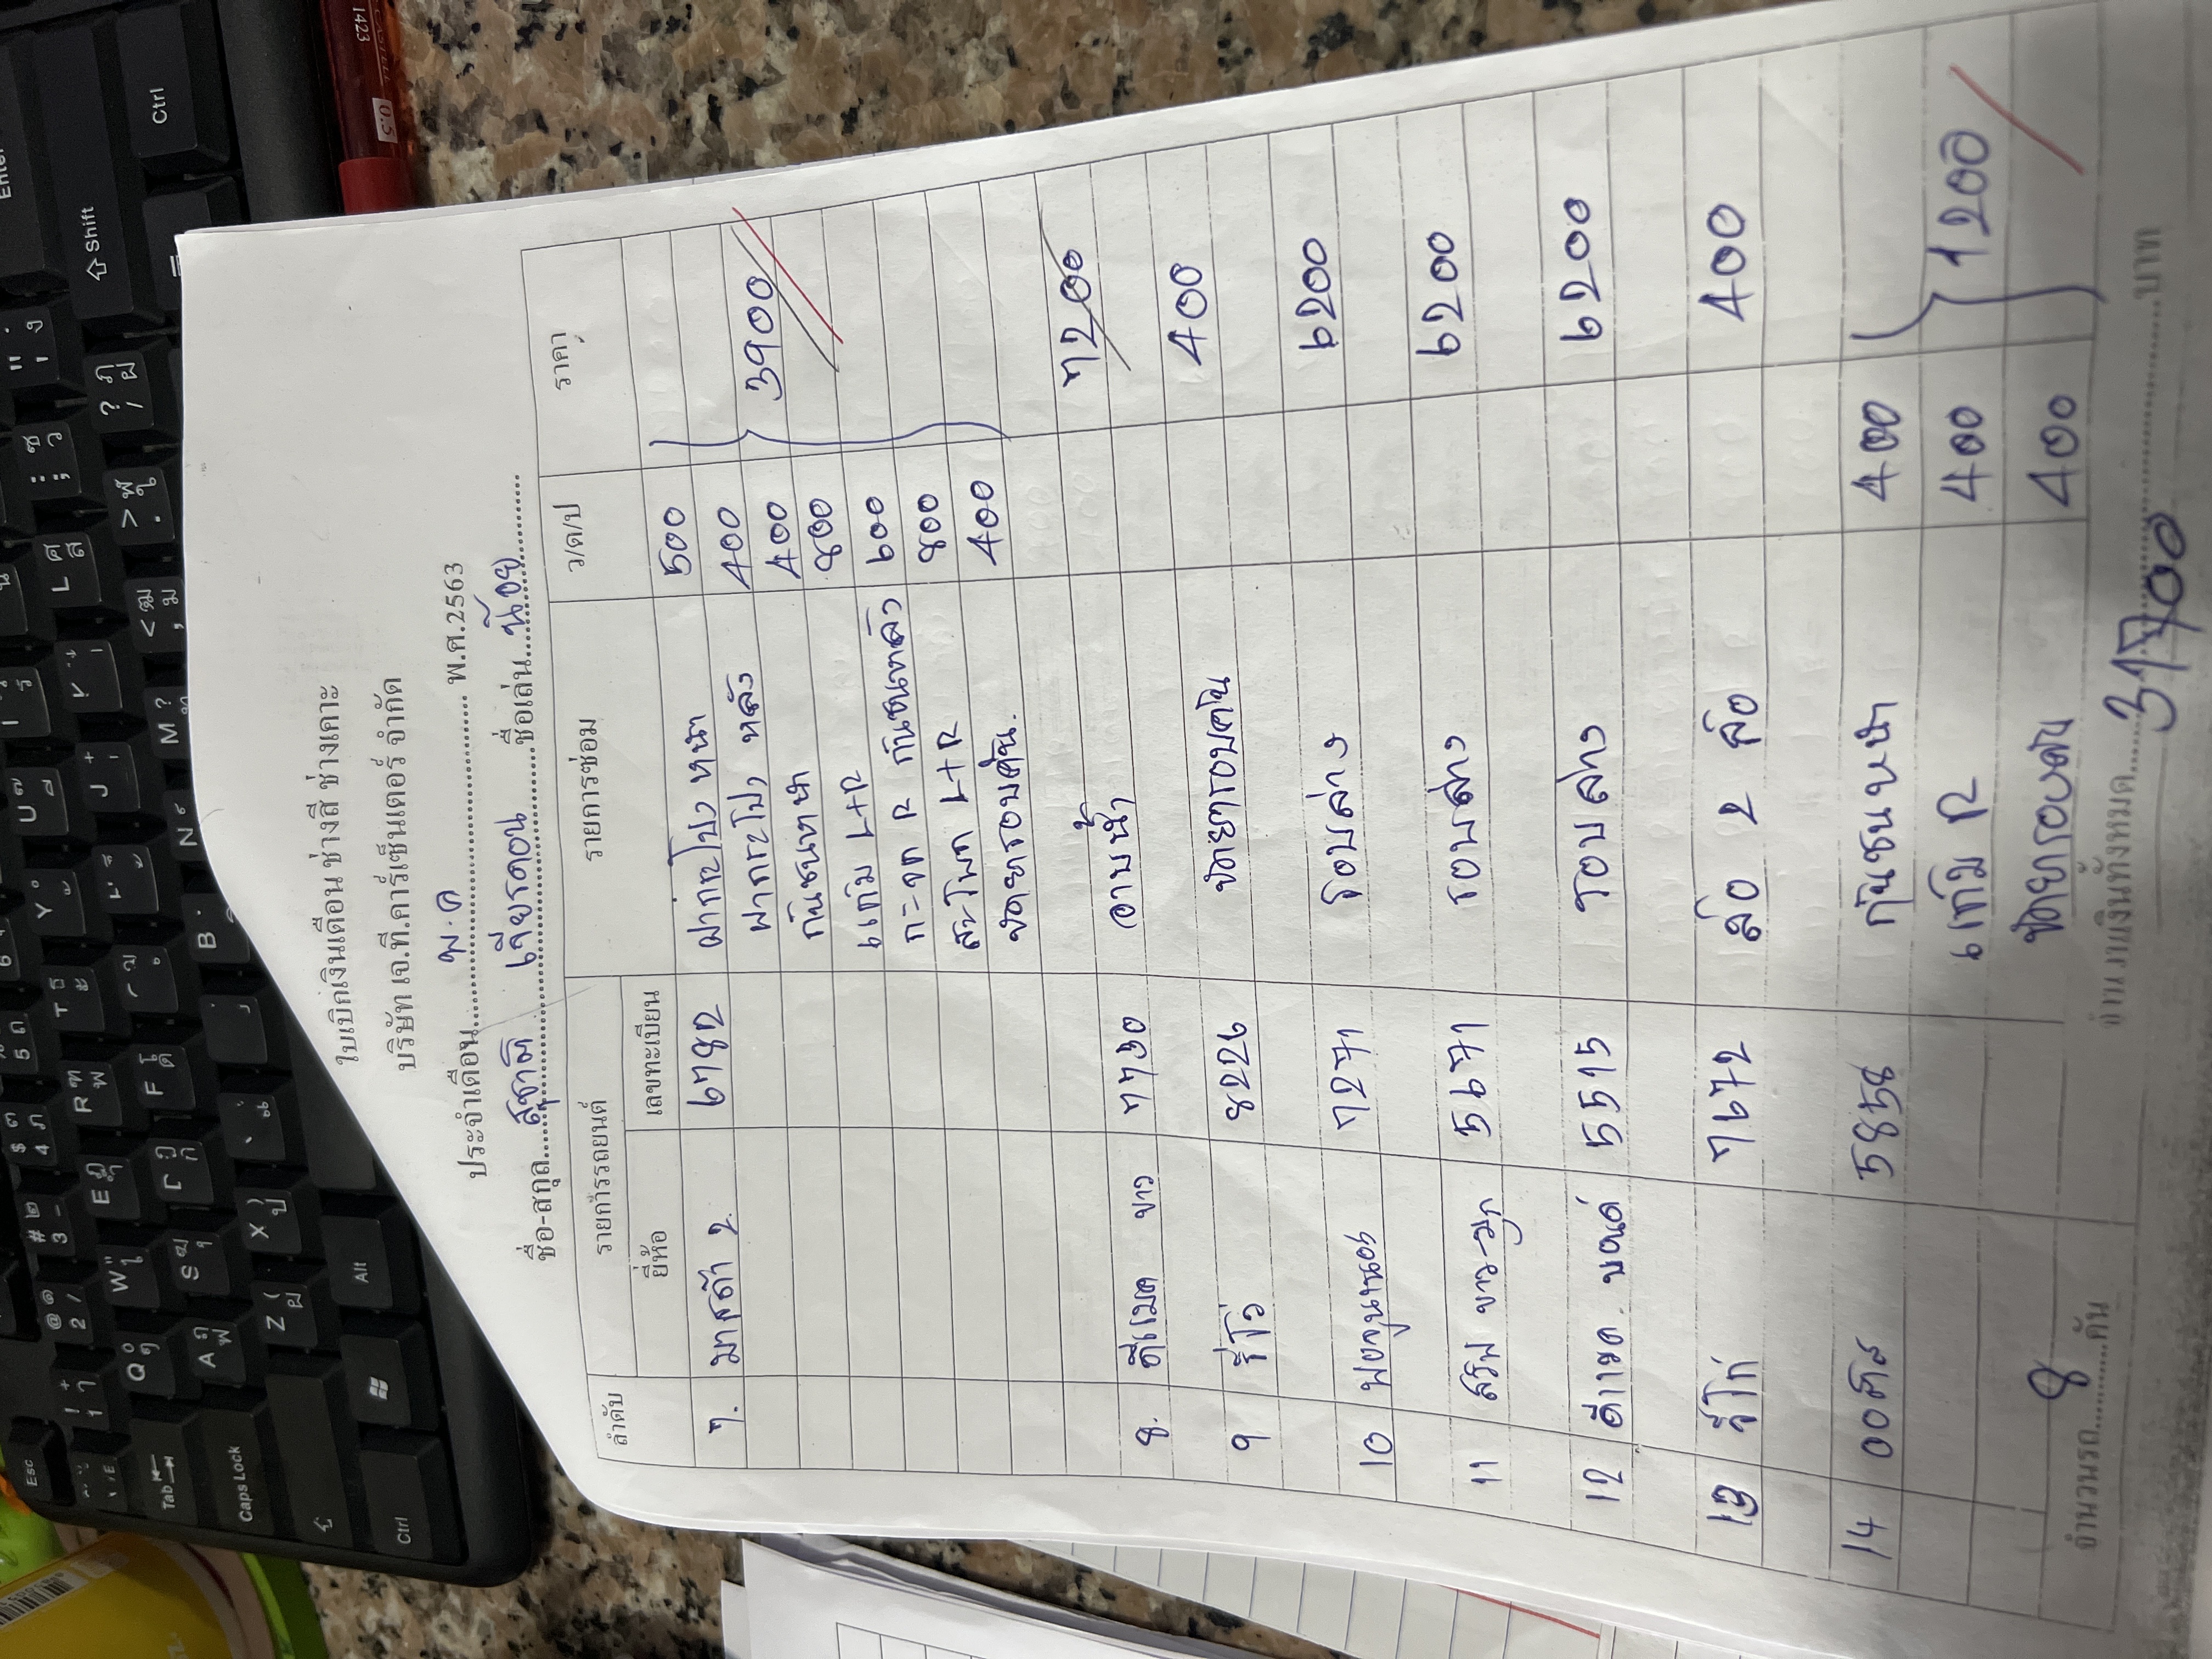 ใบเบิกเงินเดือน ช่างสี ช่างเคาะ
บริษัท เจ.ที.คาร์เซ็นเตอร์ จำกัด
ประจำเดือน......พ.ค......พ.ศ.2563
ชื่อ-สกุล...สุชาติ เจียรดอน...ชื่อเล่น...น้อย...
ลำดับ รายการรถยนต์ รายการซ่อม ว/ด/ป ราคา
ยี่ห้อ เลขทะเบียน
7. มาสด้า 2 6782 ฝากระโปรงหน้า 500
ฝากระโปรง หลัง 400
กันชนหน้า 400 3900
แก้ม L+R 800
กระจก R กันชนหลัง 600
สะโพก L+R 800
ขัดยารอบคัน 400
8. ดีแมค ขาว 7730 อาบน้ำ 7200
9 รีโว่ 8226 ขัดยารอบคัน 400
10 ฟอจูนเนอร์ 7271 รอบล่าง 6200
11 ขาว-มุก 5671 รอบล่าง 6200
12 ดีแมค 5515 รอบล่าง 6200
13 วีโก่ 7672 ล้อ 2 ล้อ 400
14 5858 กันชนหน้า 400
แก้ม R 400 1200
ขัดยารอบคัน 400
จำนวนรถ....8....คัน จำนวนเงินทั้งหมด....31700....บาท